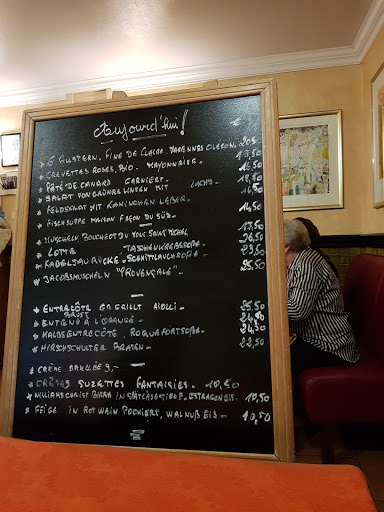 Aujourd'hui!
* 6 Austern, Fine de Claire, Marennes Oleron. 20,50
* Crevettes Roses, Bio. Mayonnaise.
* Pâté de Canard garniert.
* Salat von grünen Linsen mit Lachs.
* Feldsalat mit Kaninchen Leber. 14,50
* Fischsuppe Maison Façon du Sud
* Muscheln Bouchot du Mont Saint Michel 17,50
* Lotte Taschenkrebssoße. 26,50
* Kabeljau Rücke - Schnittlauchsoße - 23,50
* Jacobsmuscheln "Provençale" - 25,50
* Entrecôte gegrillt Aioli - 25,50
* Entenbrust à l'Orange - 24,50
* Kalbsentrecôte, Roquefortsoße - 24,50
* Hirschschulter Braten - 22,50
* Crème Brulée 9,-
* Crêpes Suzettes Fantaisies - 10,50
* Williams Christ Birne in Spätlesegelee - Estragoneis. 10,50
* Feige in Rotwein Pochiert, Walnuß Eis - 10,50